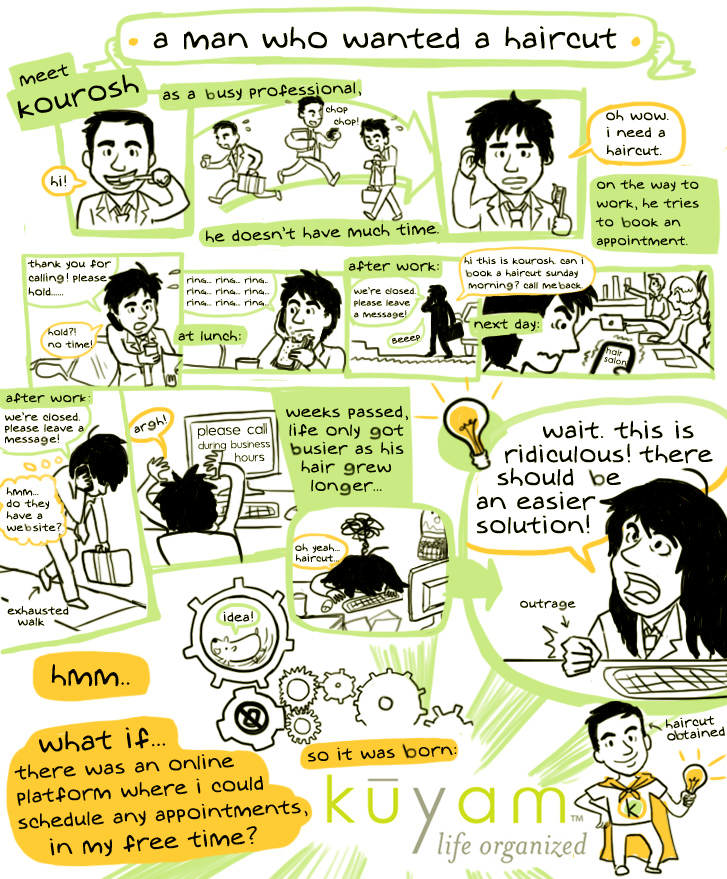 a man who wanted a haircut
meet
kourosh
as a busy professional,
hi!
chop
chop!
oh wow.
i need a
haircut.
he doesn't have much time.
on the way to
work, he tries
to book an
appointment.
thank you for
calling! please
hold......
hold?!
no time!
ring... ring... ring..
ring... ring... ring...
ring... ring... ring...
at lunch:
after work:
we're closed.
please leave
a message!
BEEEP
hi this is kourosh. can i
book a haircut sunday
morning? call me back.
next day:
hair
salon
after work:
we're closed.
please leave a
message!
hmm...
do they
have a
website?
exhausted
walk
argh!
please call
during business
hours
weeks passed,
life only got
busier as his
hair grew
longer...
oh yeah...
haircut...
wait. this is
ridiculous! there
should be
an easier
solution!
outrage
idea!
hmm..
what if...
there was an online
platform where i could
schedule any appointments,
in my free time?
so it was born:
kūyam™
life organized
haircut
obtained
k